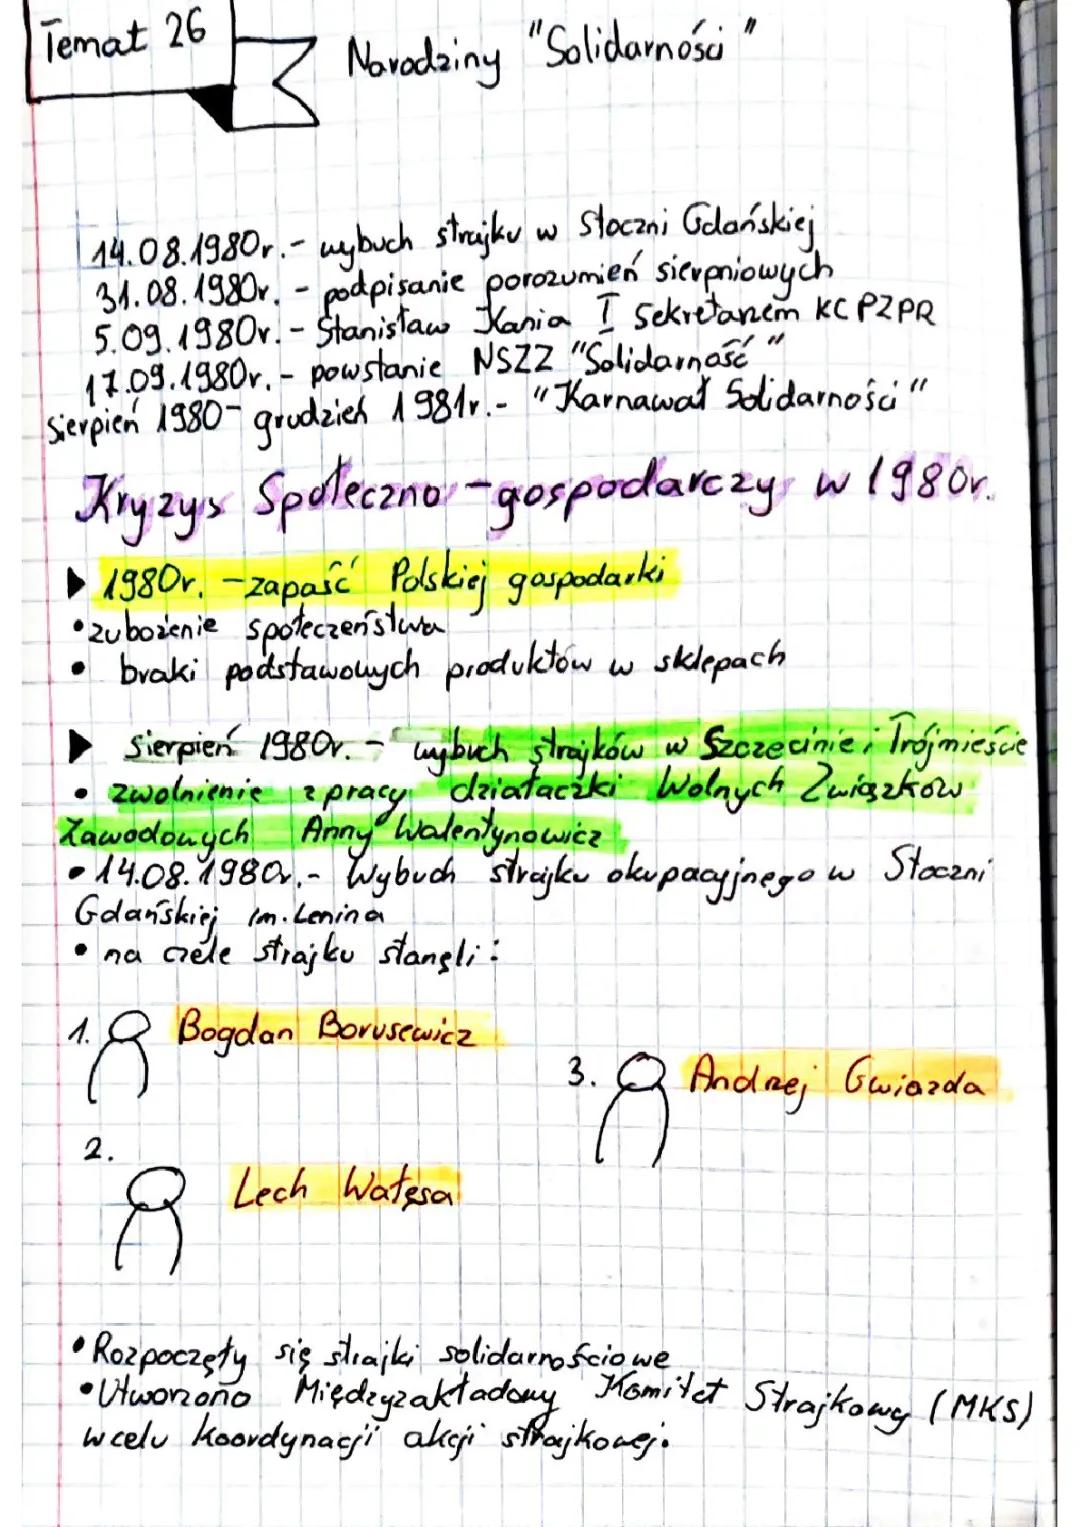 Temat 26
Narodziny "Solidarności"
14.08.1980r. - wybuch strajku w Stoczni Gdańskiej
31.08.1980r. - podpisanie porozumień sierpniowych
5.09.1980r. - Stanisław Kania I Sekretarzem KC PZPR
17.09.1980r. - powstanie NSZZ "Solidarność"
Sierpień 1980 - grudzień 1981r. - "Karnawał Solidarności"
Kryzys Społeczno - gospodarczy w 1980r.
▶ 1980r. - zapaść Polskiej gospodarki
• zubożenie społeczeństwa
• braki podstawowych produktów w sklepach
▶ Sierpień 1980r. - wybuch strajków w Szczecinie i Trójmieście
• zwolnienie z pracy działaczki Wolnych Związków
Zawodowych Anny Walentynowicz
• 14.08.1980r. - Wybuch strajku okupacyjnego w Stoczni
Gdańskiej im. Lenina
• na czele strajku stanęli:
1. Bogdan Borusewicz
3. Andrzej Gwiazda
2. Lech Wałęsa
• Rozpoczęły się strajki solidarnościowe
• Utworzono Międzyzakładowy Komitet Strajkowy (MKS)
w celu koordynacji akcji strajkowej.